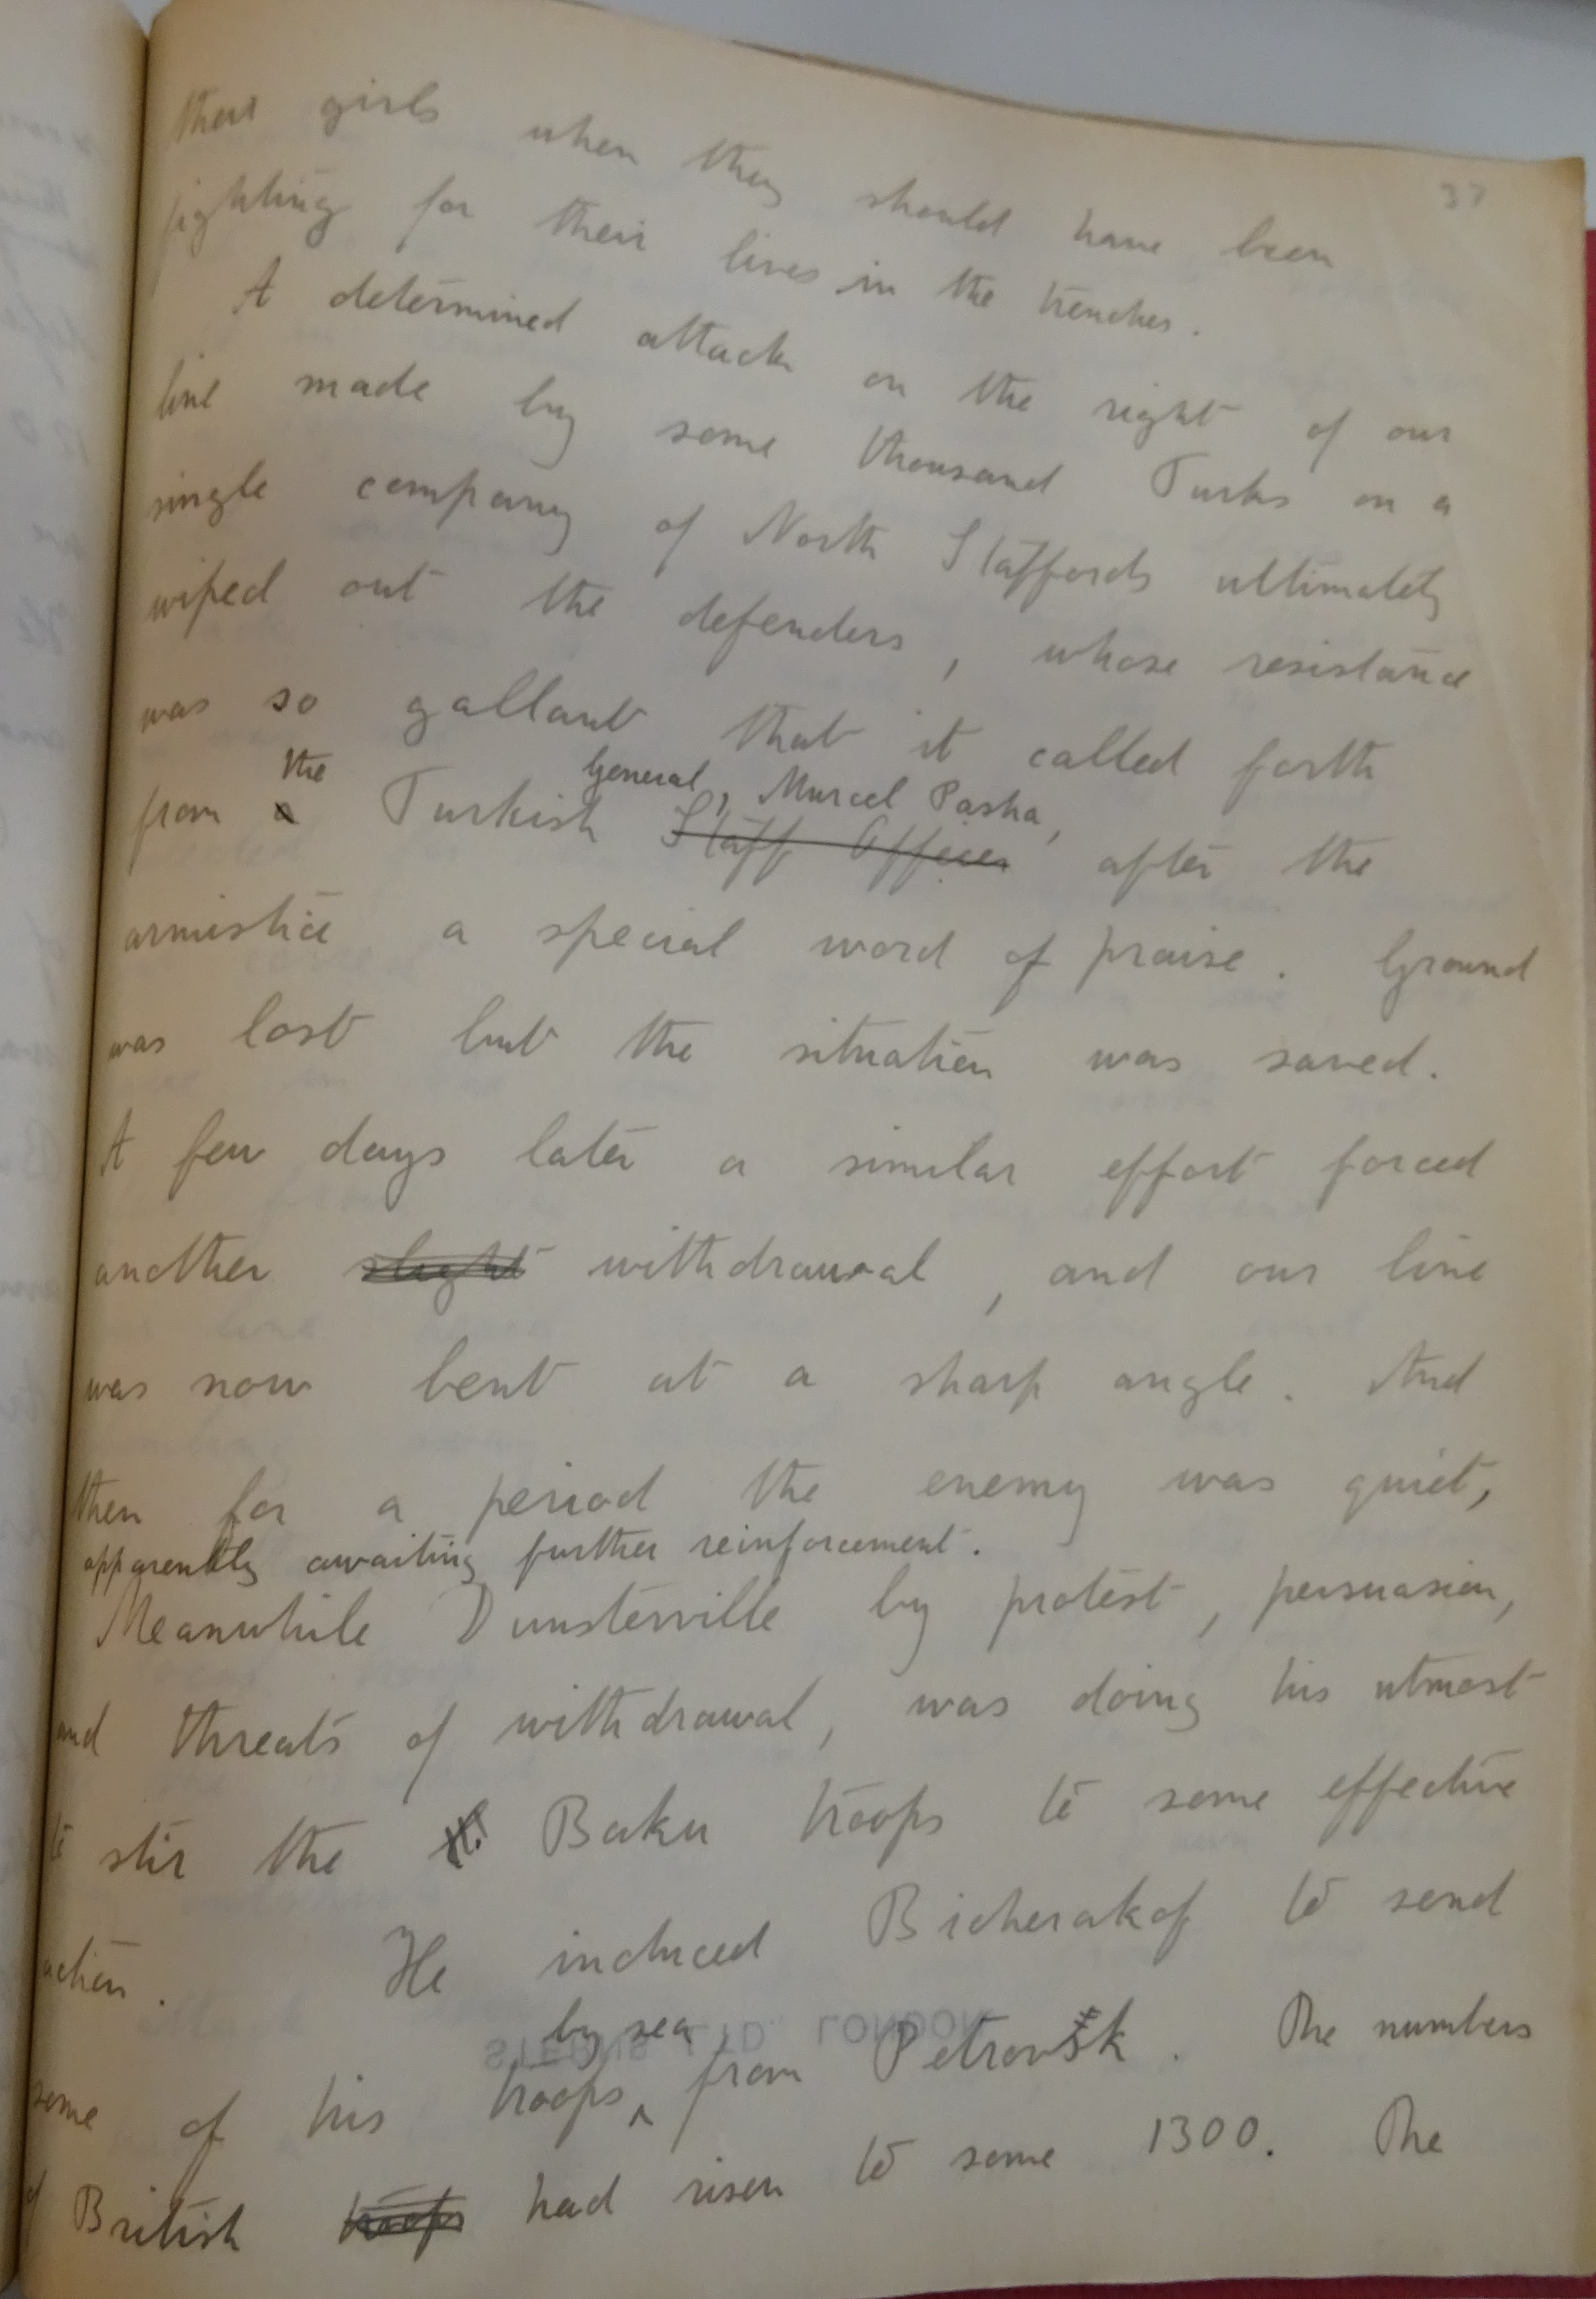 37
their girls when they should have been
fighting for their lives in the trenches.
A determined attack on the right of our
line made by some thousand Turks on a
single company of North Staffords ultimately
wiped out the defenders, whose resistance
was so gallant that it called forth
the General, Murcel Pasha,
from a Turkish Staff Officer after the
armistice a special word of praise. Ground
was lost but the situation was saved.
A few days later a similar effort forced
another slight withdrawal, and our line
was now bent at a sharp angle. And
then for a period the enemy was quiet,
apparently awaiting further reinforcement.
Meanwhile Dunsterville by protest, persuasion,
and threats of withdrawal, was doing his utmost
to stir the Baku troops to some effective
action. He induced Bicherakof to send
by sea
some of his troops ^ from Petrovsk. The numbers
of British troops had risen to some 1300. The